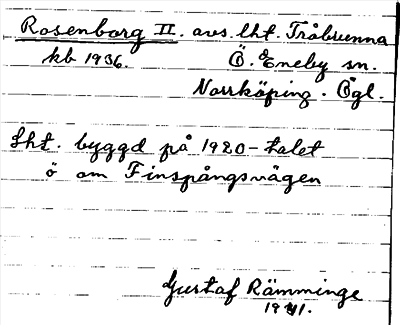 Rosenborg II. avs. lht. Tråbrunna
kb 1936. Ö. Eneby sn.
Norrköping. Ögl.
Lht. byggd på 1920-talet
ö om Finspångsvägen
Gustaf Rämminge
1941.